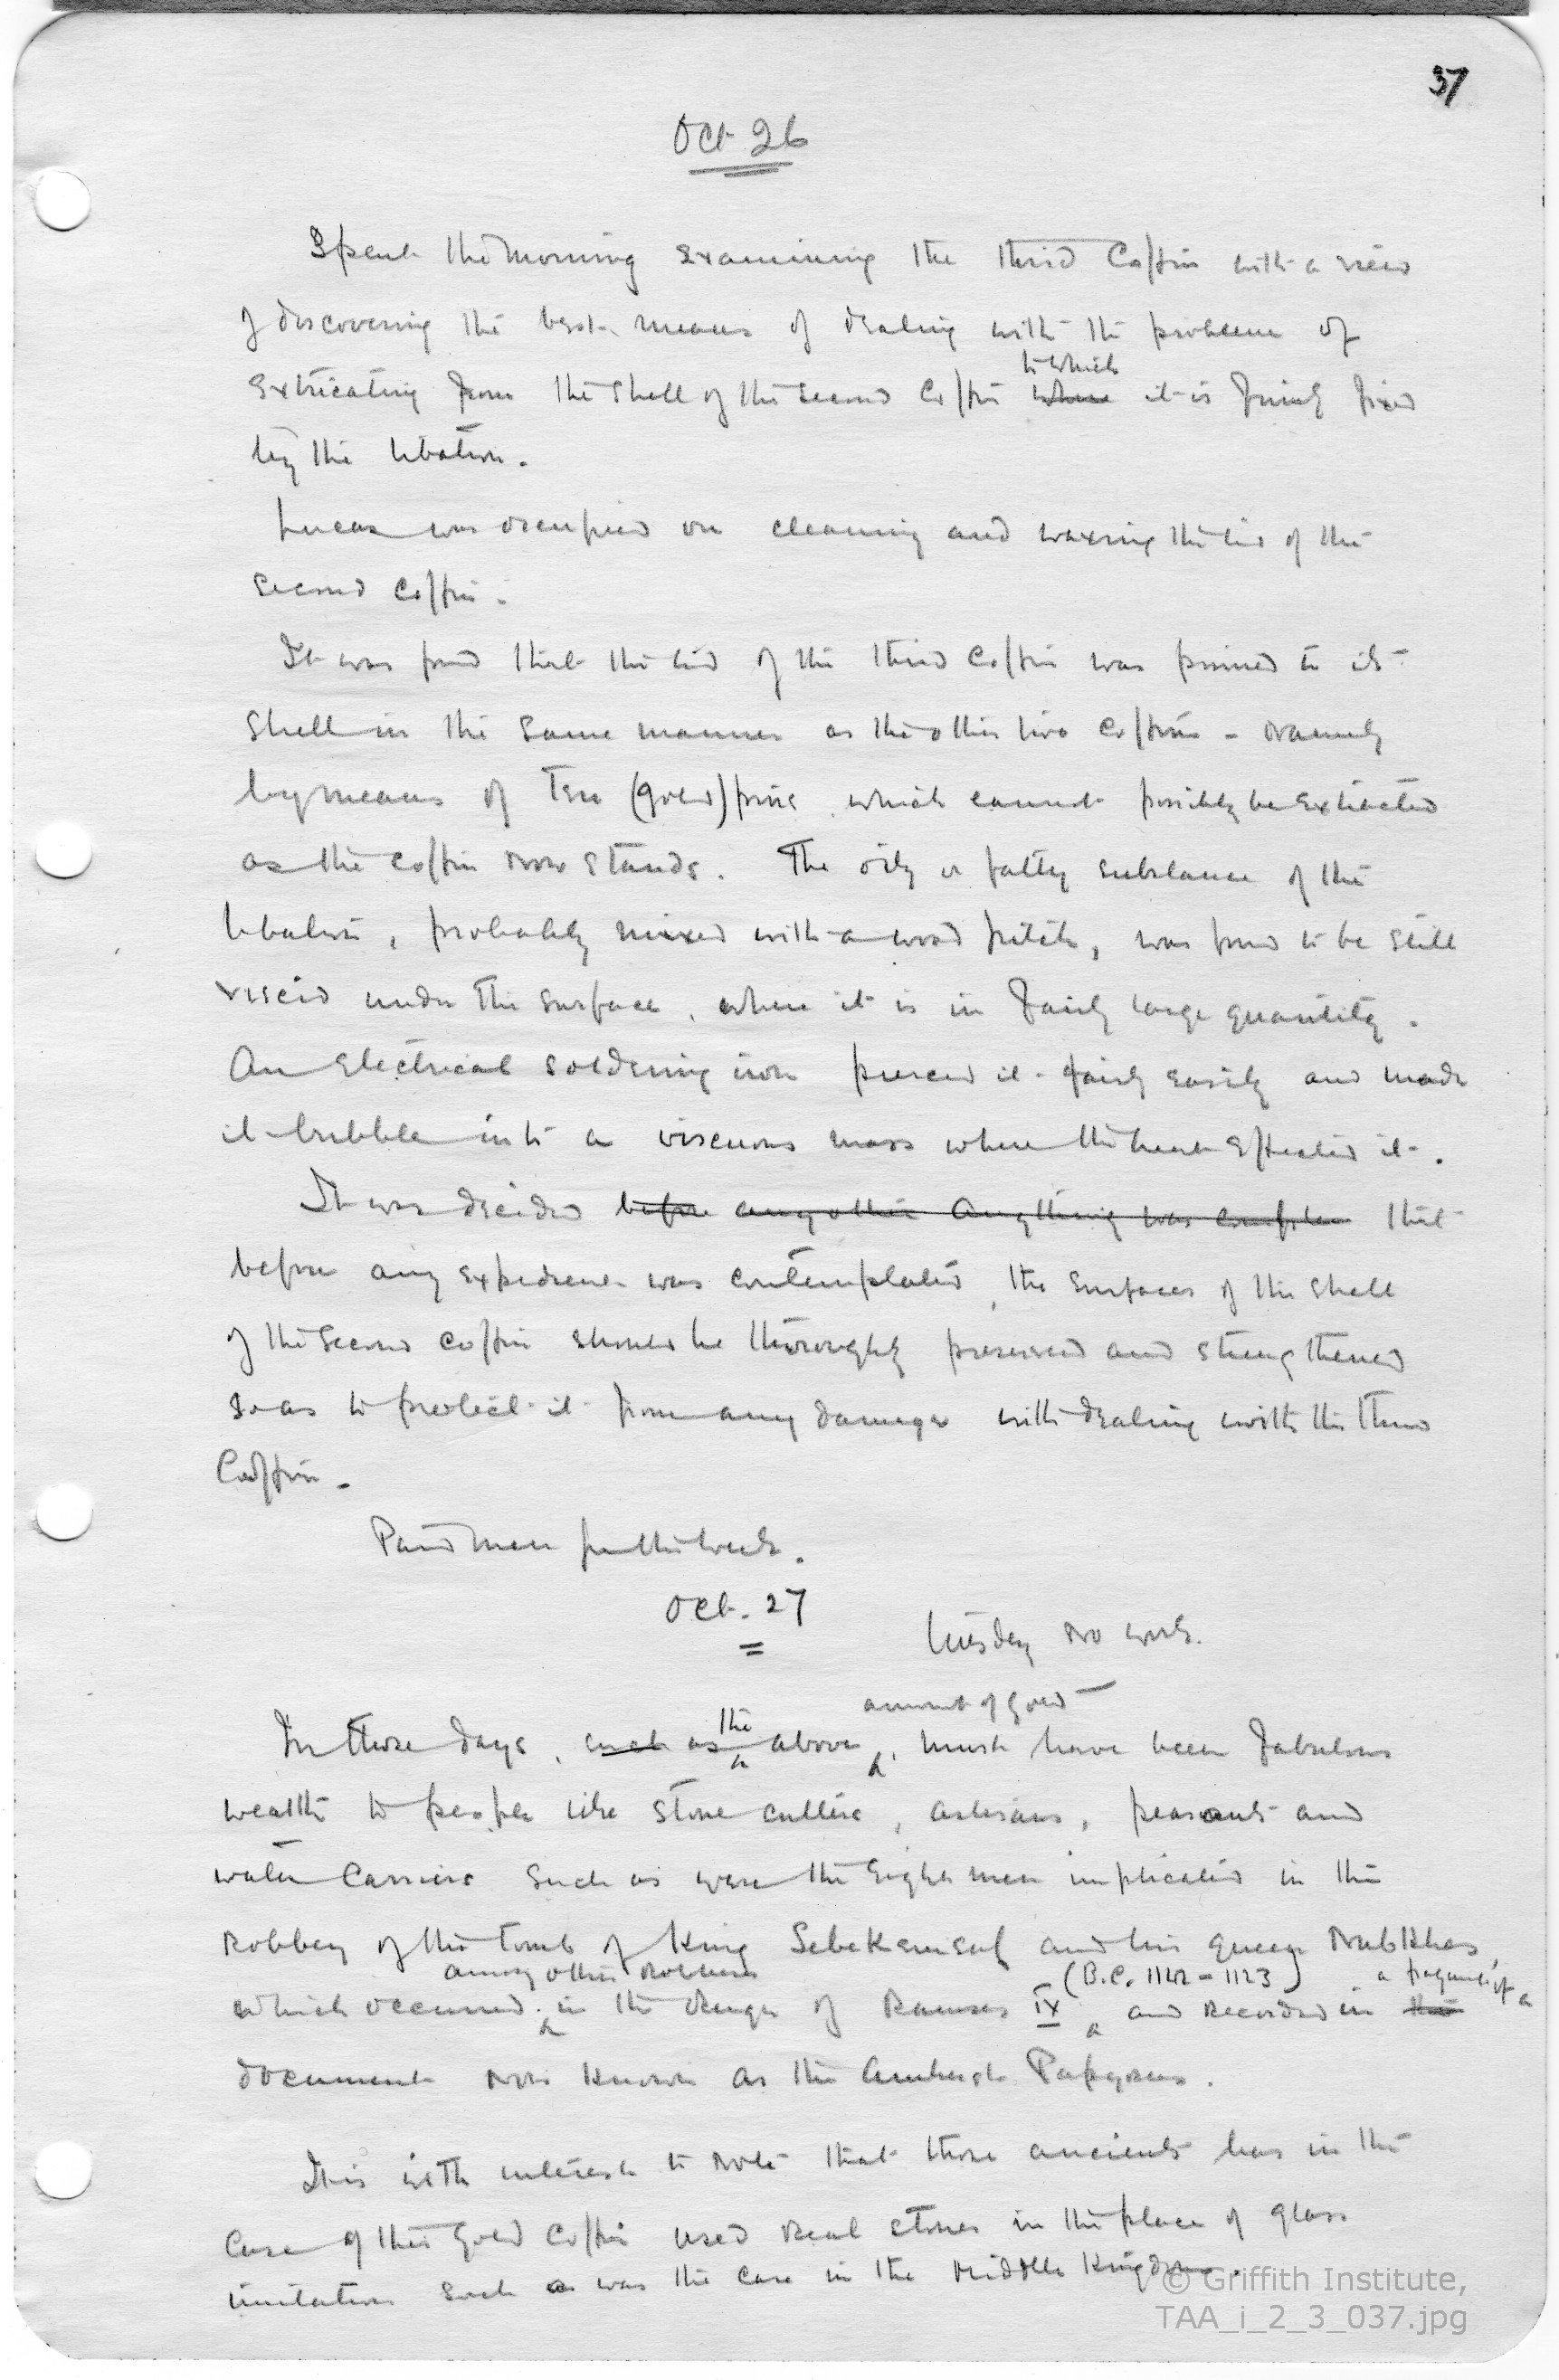 37
Oct 26
Spent the morning examining the third coffin with a view
of discovering the best means of dealing with the problem of
to which
extricating from the shell of the second coffin where it is firmly fixed
by the libation.
Lucas was occupied on cleaning and waxing the lid of the
second coffin.
It was found that the lid of the third coffin was pinned to its
shell in the same manner as the other two coffins - namely
by means of ten (gold) pins which cannot possibly be extracted
as the coffin now stands. The oily or fatty substance of the
libation, probably mixed with a wood pitch, was found to be still
viscid under the surface, where it is in fairly large quantity.
An electrical soldering iron pierced it fairly easily and made
it bubble into a viscuous mass where the heat effected it.
It was decided before any other anything was that
before any expedient was contemplated, the surfaces of the shell
of the second coffin should be thoroughly preserved and strengthened
so as to protect it from any damage with dealing with the third
Coffin.
Paid men for the week.
Oct. 27
Tuesday no work.
amount of gold
the
In those days, such as above, must have been fabulous
wealth to people like stone cutters, artisans, peasants and
water carriers such as were the eight men implicated in the
robbery of the tomb of King Sebekemsaf and his queen Nubkhas,
among other robberies (B.C. 1142 - 1123) a fragment of a
which occurred in the reign of Ramses IX and recorded in the
document now known as the Amherst Papyrus.
It is with interest to note that those ancients has in the
case of this gold coffin used real stones in the place of glass
imitation such as was the case in the Middle Kingdom.
© Griffith Institute,
TAA_i_2_3_037.jpg